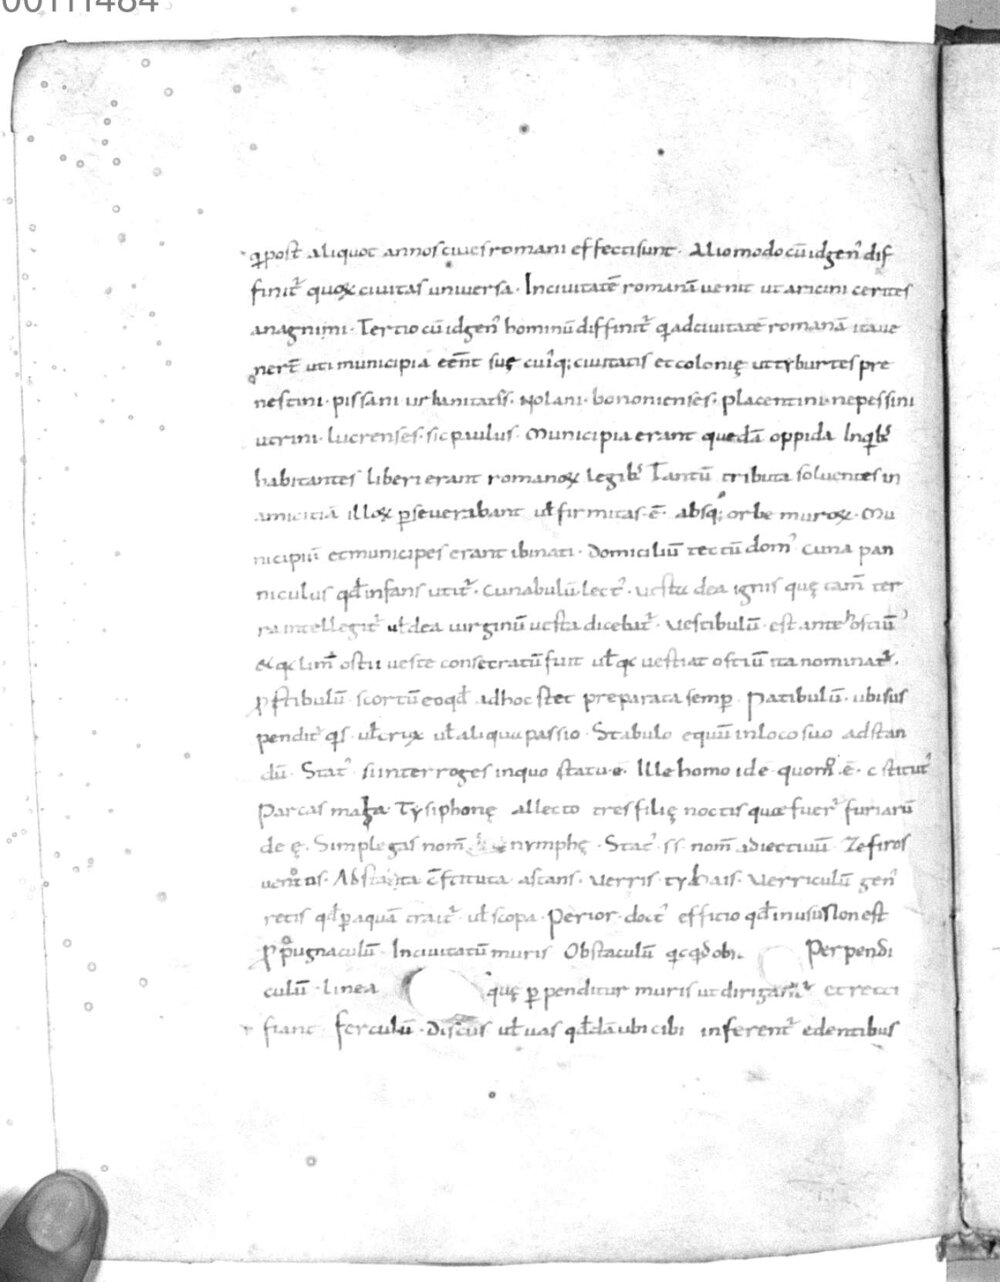 00111484
qi post aliquot annos cives romani effecti sunt · Alio modo cū id gen᾽ dif
finit᷑ quoꝝ civitas universa · In civitatē romanā venit ut aricini cerites
anagnini · Tertio cū id gen᾽ hominū diffinit᷑ qi ad civitatē romanā ita ve
nerꝉ uti municipia eēnt suę cuiq; civitatis et colonię ut tyburtes pre
nestini · pissani urbanitatis̄ · Nolani · bononienses · placentini · nepessini
utrini · lucrenses · sic paulus · Municipia erant quedā oppida In qib᾽
habitantes liberi erant romanoꝝ legib᾽ Tantū tributa solventes in
amicitiā illoꝝ pseverabant uł firmitas · ē · absq; orbe muroꝝ · Mu
nicipiū et municipes erant ibi nati · Domiciliū tectū dom᾽ Cuna pan
niculus qđ infans utit᷑ · Cunabulū lect᾽ · Vesta dea ignis quę tam̄ ter
ra intellegit᷑ uł dea virginū vesta dicebat᷑ · Vestibulū · est ante hostiū
& q lim̄ ostii veste consecratū fuit uł q vestiat ostiū ita nominat᷑ ·
ꝓstibulū · scortū eo qđ ad hoc stet preparata semp · Patibulū · ubi sus
pendit᷑ qs · uł crux uł aliqua passio · Stabulo equū in loco suo adstan
dū · Stat᾽ si interroges in quo statu · ē · Ille homo id ē · quom̊ · ē · cstitut᾽
Parcas · Tysiphonę allecto tres filię noctis quae fuer᷑ furiarū
de ę · Simplegas nom̄ nymphę · Stat᾽ · ss · nom̄ adiectivū · Zefiros
vent᾽ · Abstantia c̄stituta · astans · Verris · Verriculū gen᾽
retis qđ p aquā trait᷑ · uł scopa · Perior · doct᾽ efficio qđ in usu non est
ꝓpugnaculū · In civitatū muris Obstaculū qicqid obi · Perpendi
culū · linea quę ppenditur muris ut dirigant᷑ et recti
fiant ferculū · Discus uł vas qđdā ubi cibi inferent᷑ edentibus